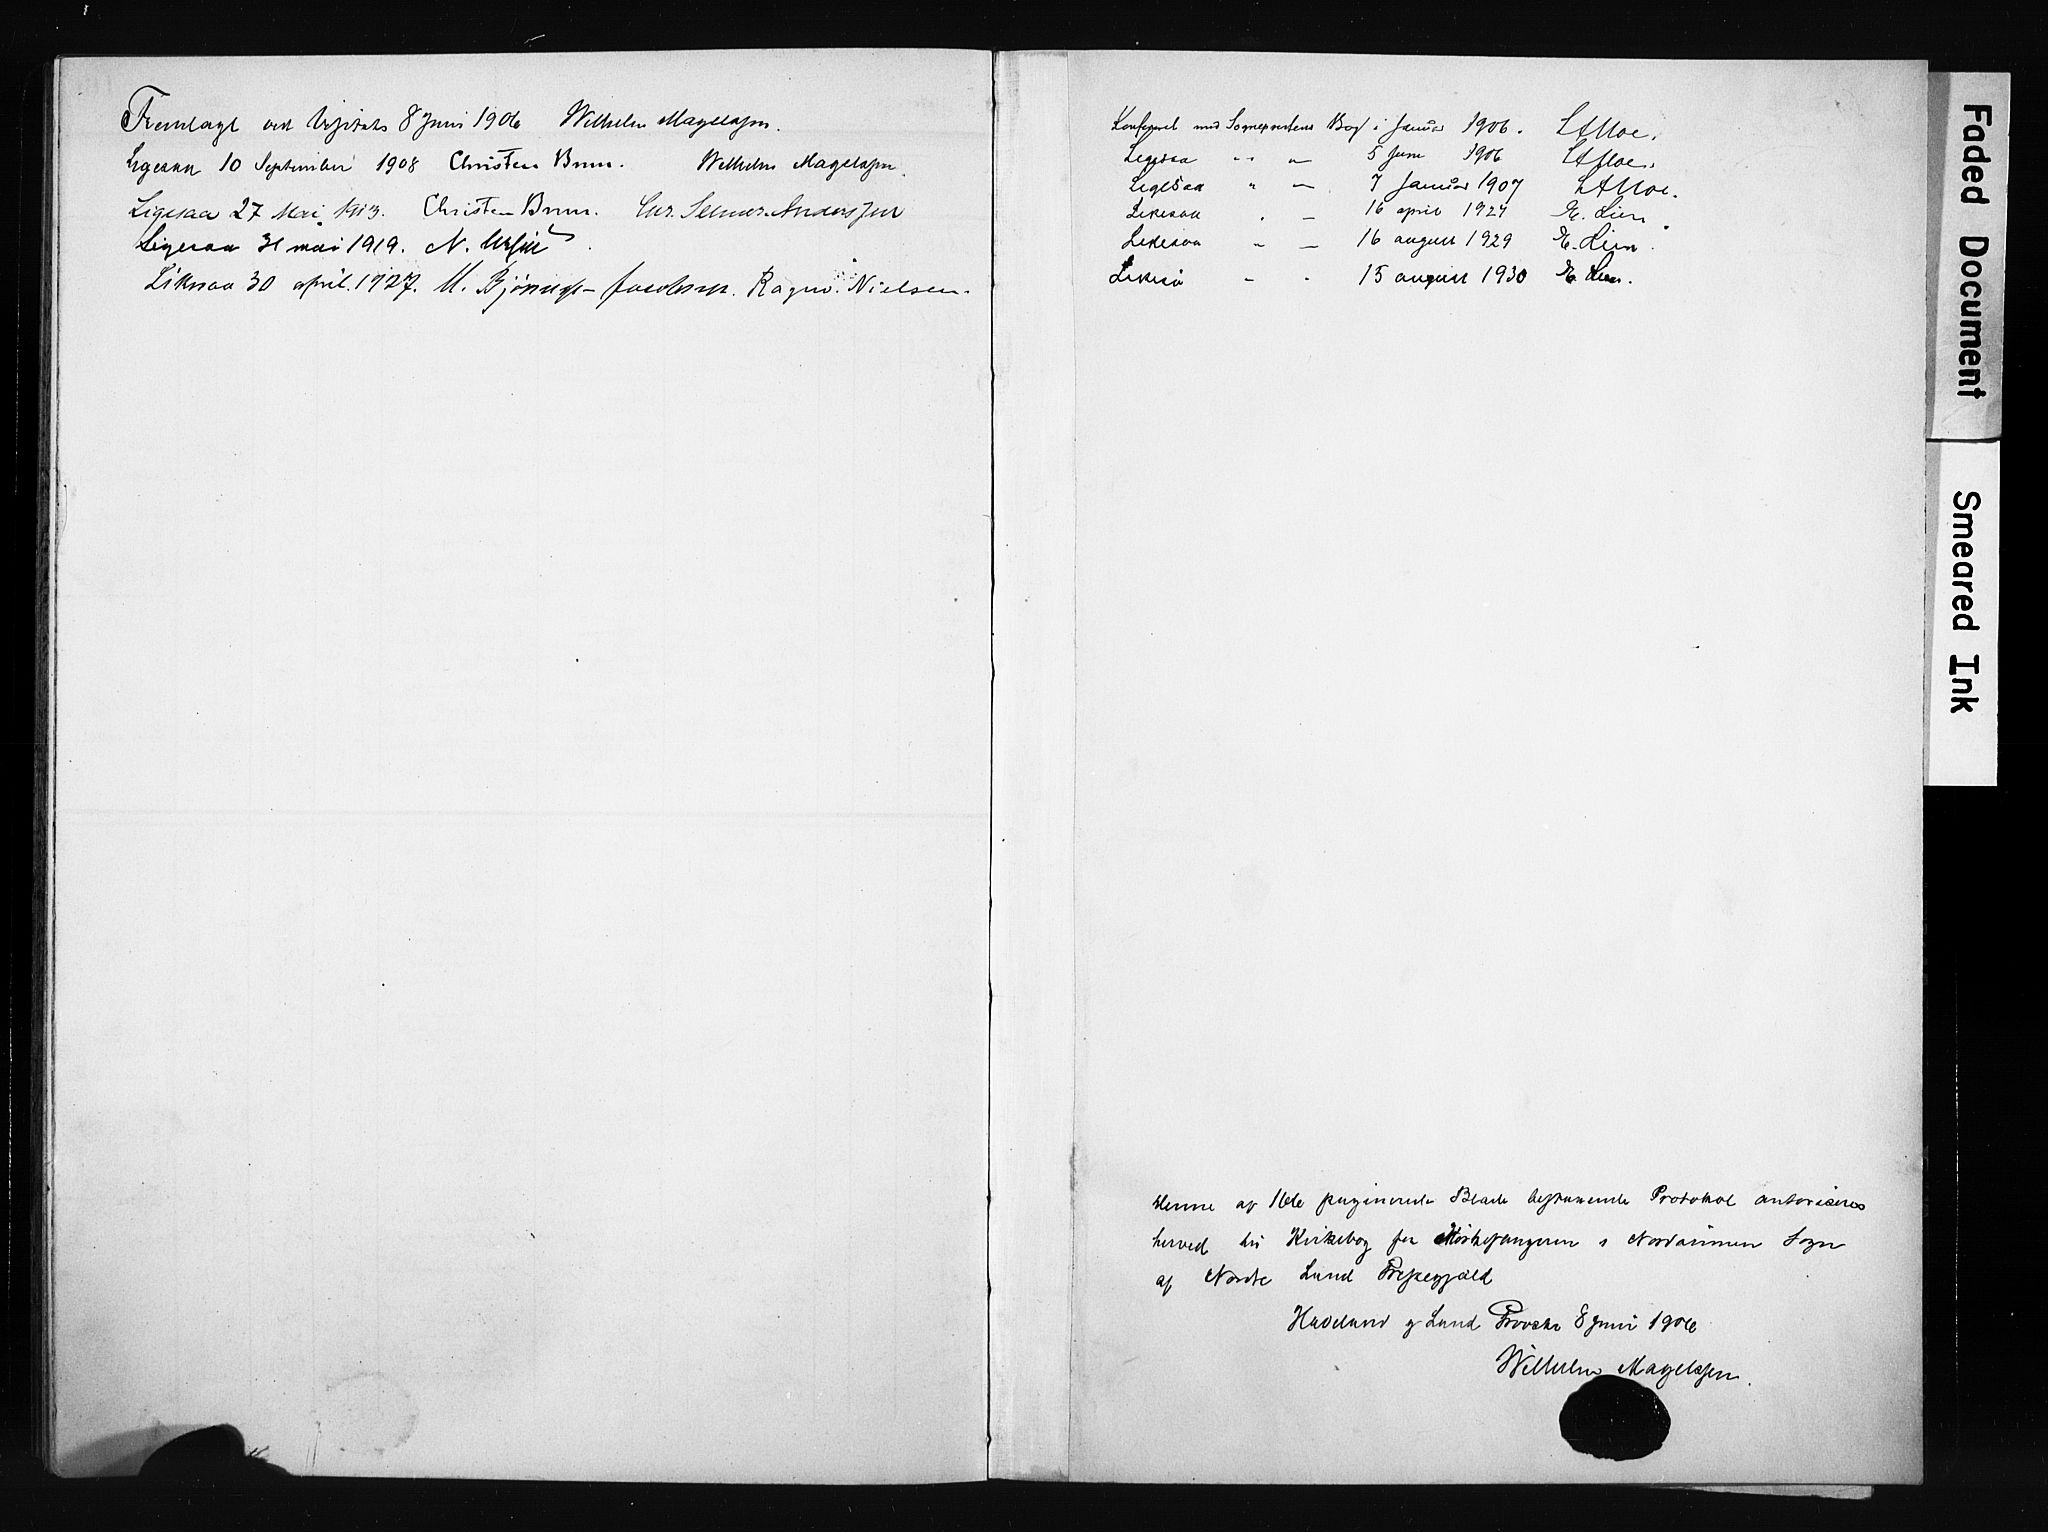 Fremlagt ved Visitats 8 Juni 1906 Wilhelm Magelssen.
Ligesaa 10 September 1908 Christen Brun. Wilhelm Magelssen.
Ligesaa 27 Mai 1913. Christen Brun. Chr. Selmer-Anderssen
Ligesaa 31 mai 1919. N.
Likesaa 30 april 1927. M. Bjønness-Jacobsen. Ragnv. Nielsen.
Konfereret med Sognepræstens Bog i Januar 1906. LAMoe.
Ligesaa " — 5 Juni 1906 LAMoe.
Ligesaa " — 7 Januar 1907 LAMoe.
Likesaa " — 16 april 1927 E. Lien
Likesaa " — 16 august 1929 E. Lien.
Likeså " " 15 august 1930 E. Lien.
Denne af paginerede Blade bestaaende Protokol autoriseres
herved til Kirkebog for Kirkesangeren i Nordsinnen Sogn
af Nordre Land Præstegjæld
Hadeland og Land Provsti 8 Juni 1906
Wilhelm Magelssen.
Faded Document
Smeared Ink